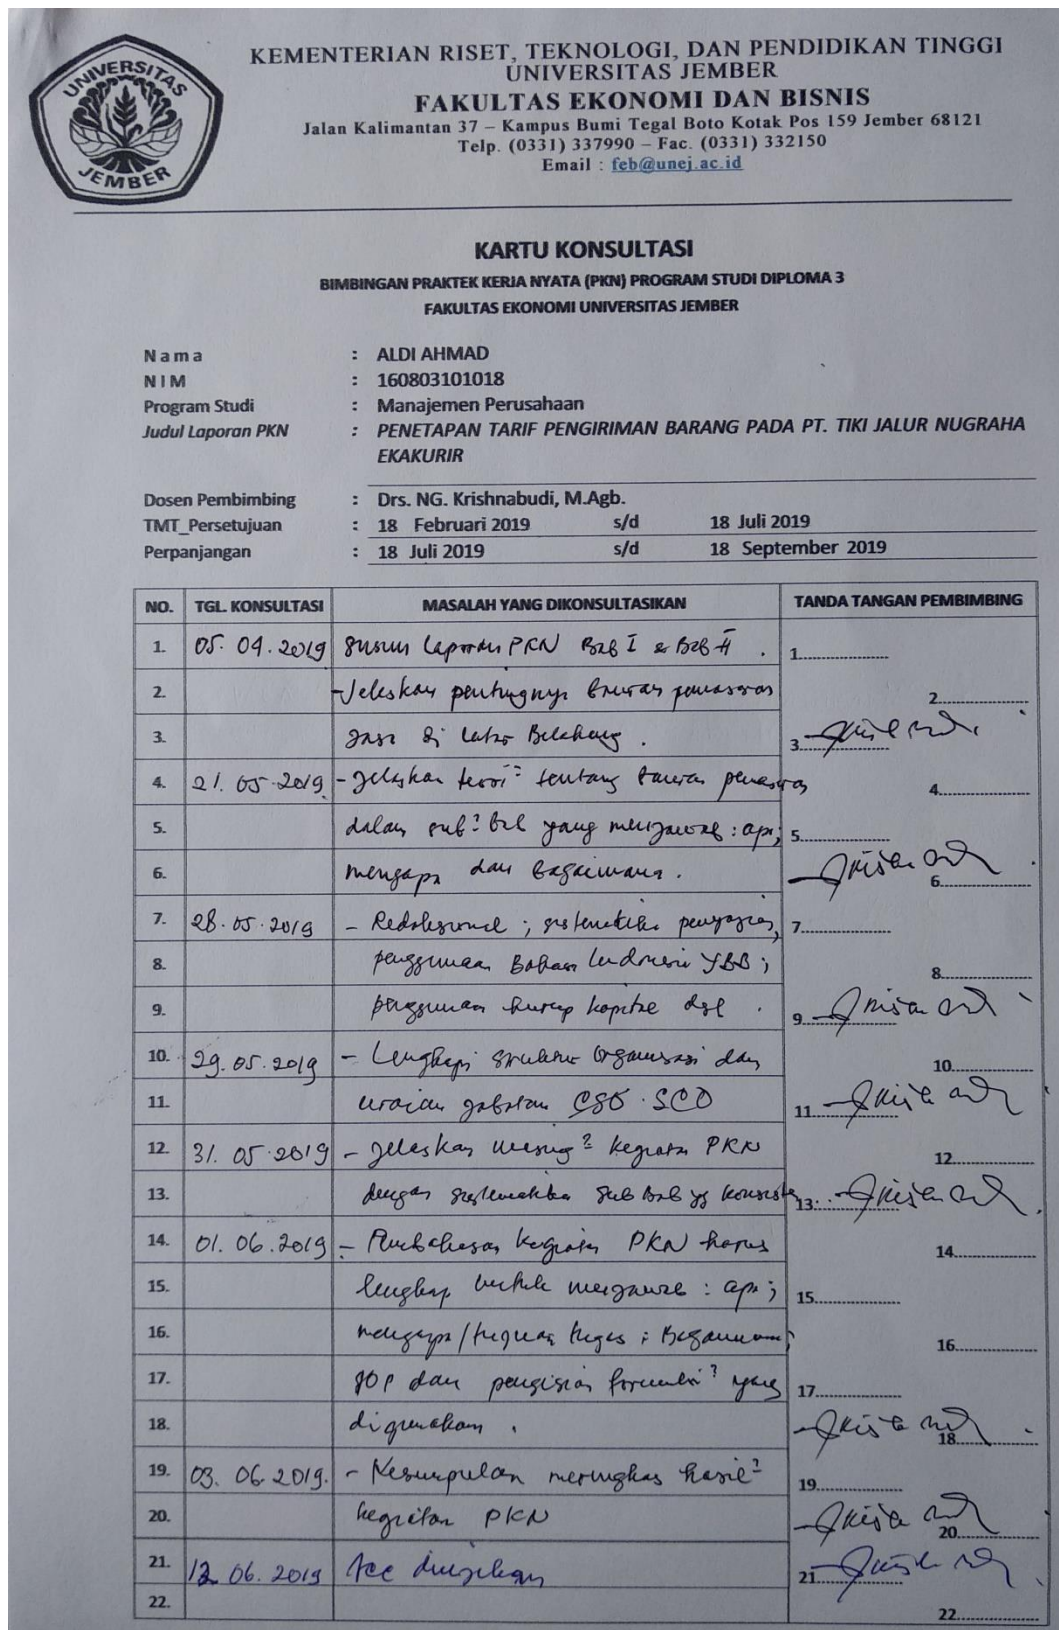 UNIVERSITAS
JEMBER
KEMENTERIAN RISET, TEKNOLOGI, DAN PENDIDIKAN TINGGI
UNIVERSITAS JEMBER
FAKULTAS EKONOMI DAN BISNIS
Jalan Kalimantan 37 – Kampus Bumi Tegal Boto Kotak Pos 159 Jember 68121
Telp. (0331) 337990 – Fac. (0331) 332150
Email : feb@unej.ac.id
KARTU KONSULTASI
BIMBINGAN PRAKTEK KERJA NYATA (PKN) PROGRAM STUDI DIPLOMA 3
FAKULTAS EKONOMI UNIVERSITAS JEMBER
N a m a : ALDI AHMAD
N I M : 160803101018
Program Studi : Manajemen Perusahaan
Judul Laporan PKN : PENETAPAN TARIF PENGIRIMAN BARANG PADA PT. TIKI JALUR NUGRAHA
EKAKURIR
Dosen Pembimbing : Drs. NG. Krishnabudi, M.Agb.
TMT_Persetujuan : 18 Februari 2019 s/d 18 Juli 2019
Perpanjangan : 18 Juli 2019 s/d 18 September 2019
NO. TGL. KONSULTASI MASALAH YANG DIKONSULTASIKAN TANDA TANGAN PEMBIMBING
1. 05.04.2019 Susun Laporan PKN Bab I & Bab II . 1
2. -Jelaskan pentingnya bauran pemasaran 2
3. Jasa di Latar Belakang . 3
4. 21.05.2019 - Jelaskan teori² tentang bauran pemasaran 4
5. dalam sub² bab yang menjawab : apa; 5
6. mengapa dan bagaimana . 6
7. 28.05.2019 - Redaksional ; sistematika penyajian, 7
8. penggunaan Bahasa Indonesia YBB ; 8
9. penggunaan huruf kapital dsb . 9
10. 29.05.2019 - Lengkapi struktur Organisasi dan 10
11. uraian jabatan CSO . SCO 11
12. 31.05.2019 - Jelaskan masing² kegiatan PKN 12
13. dengan sistematika sub bab yg konsisten 13
14. 01.06.2019 - Pembahasan kegiatan PKN harus 14
15. lengkap untuk menjawab : apa ; 15
16. mengapa/ ; Bagaimana ; 16
17. SOP dan pengisian formulir² yang 17
18. digunakan . 18
19. 03.06.2019. - Kesimpulan meringkas hasil² 19
20. kegiatan PKN 20
21. 12.06.2019 Acc diujikan 21
22. 22